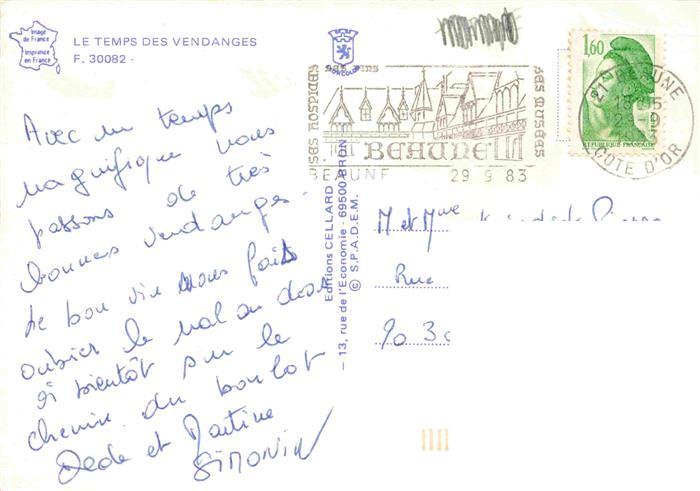 Image
de France
Imprimé
en France
LE TEMPS DES VENDANGES
F. 30082 -
Avec un temps
magnifique nous
passons de très
bonnes vendanges.
Le bon vin nous fait
oublier le mal au dos
à bientôt sur le
chemin du boulot
Dede et Martine
SIMONIN
Editions CELLARD
– 13, rue de l'Economie - 69500 BRON
© S.P.A.D.E.M.
SES HOSPICES
SES VINS
SES MUSÉES
BEAUNE
BEAUNE 29 9 83
1,60
REPUBLIQUE FRANÇAISE
21 BEAUNE
COTE D'OR
M et Mme
Rue
90 30